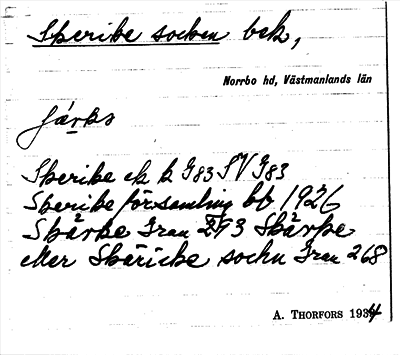 Skerike socken bek,
Norrbo hd, Västmanlands län
järks
Skerike ck k G83 SV G83
Skerike församling bb 1926
Skärke Gran 273 Skärke
eller Skäricke sockn Gran 268
A. THORFORS 1934